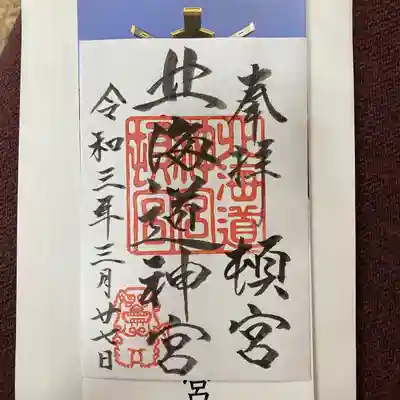 奉拝 頓宮
北海道神宮
令和三年三月廿七日
北海道神宮頓宮
宮